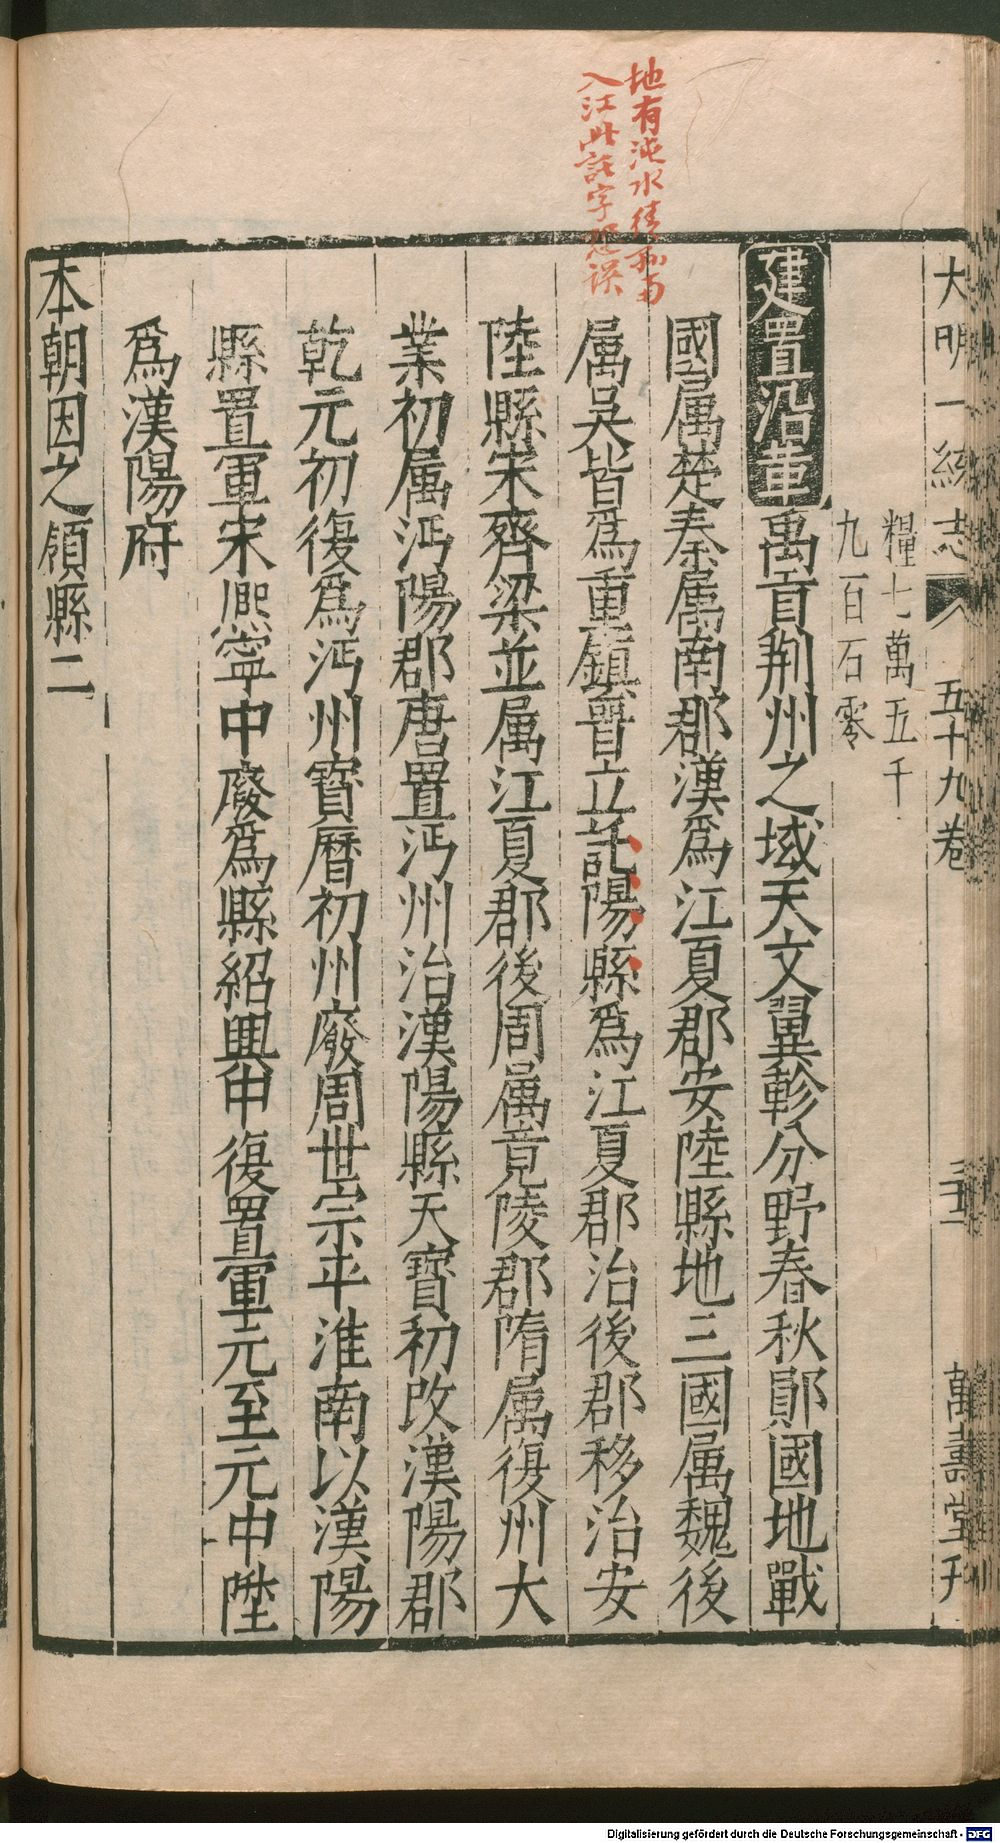 大明一統志 五十九卷 萬壽堂刊
糧七萬五千
九百石零
建置沿革 禹貢荆州之域天文翼軫分野春秋鄖國地戰
國属楚秦属南郡漢爲江夏郡安陸縣地三國属魏後
属吳皆爲重鎮晉立託陽縣爲江夏郡治後郡移治安
陸縣宋齊梁並属江夏郡後周属竟陵郡隋属復州大
業初属沔陽郡唐置沔州治漢陽縣天寶初改漢陽郡
乾元初復爲沔州寳曆初州廢周世宗平淮南以漢陽
縣置軍宋熈寧中廢爲縣紹興中復置軍元至元中陞
爲漢陽府
本朝因之領縣二
地有沌水
入江此託字恐誤
Digitalisierung gefördert durch die Deutsche Forschungsgemeinschaft - DFG